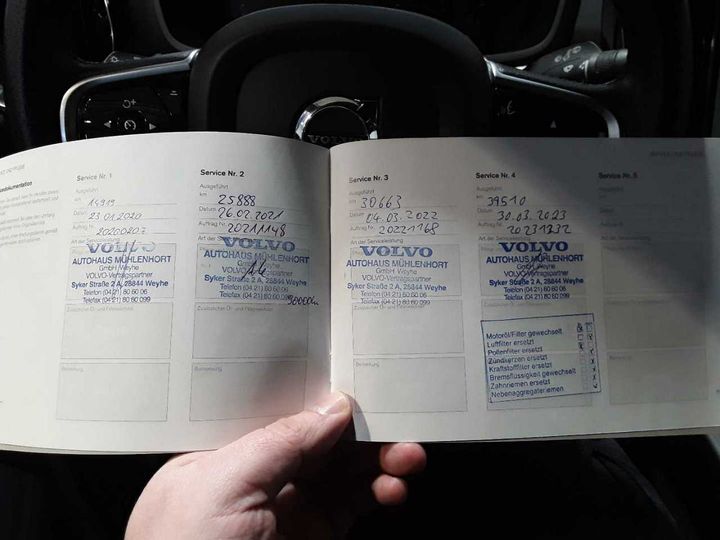 Service Nr. 1
Ausgeführt
km 14919
Datum 23.01.2020
Auftrag Nr. 20200207
Art der Serviceleistung
VOLVO
AUTOHAUS MÜHLENHORT
GmbH Weyhe
VOLVO-Vertragspartner
Syker Straße 2 A, 28844 Weyhe
Telefon (04 21) 80 60 06
Telefax (04 21) 80 60 099
Zusätzlicher Öl- und Filterwechsel
Bemerkung
Service Nr. 2
Ausgeführt
km 25888
Datum 26.02.2021
Auftrag Nr. 20211148
Art der
VOLVO
AUTOHAUS MÜHLENHORT
GmbH Weyhe
VOLVO-Vertragspartner
Syker Straße 2 A, 28844 Weyhe
Telefon (04 21) 80 60 06
Telefax (04 21) 80 60 099
Zusätzlicher Öl- und Filterwechsel
Bemerkung
Service Nr. 3
Ausgeführt
km 30663
Datum 04.03.2022
Auftrag Nr. 20221168
Art der Serviceleistung
VOLVO
AUTOHAUS MÜHLENHORT
GmbH Weyhe
VOLVO-Vertragspartner
Syker Straße 2 A, 28844 Weyhe
Telefon (04 21) 80 60 06
Telefax (04 21) 80 60 099
Zusätzlicher Öl- und Filterwechsel
Bemerkung
Service Nr. 4
Ausgeführt
km 39510
Datum 30.03.2023
Auftrag Nr. 20231232
Art der Serviceleistung
VOLVO
AUTOHAUS MÜHLENHORT
GmbH Weyhe
VOLVO-Vertragspartner
Syker Straße 2 A, 28844 Weyhe
Telefon (04 21) 80 60 06
Telefax (04 21) 80 60 099
Motoröl/Filter gewechselt
Luftfilter ersetzt
Pollenfilter ersetzt
Zündkerzen ersetzt
Kraftstofffilter ersetzt
Bremsflüssigkeit gewechselt
Zahnriemen ersetzt
Nebenaggregateriemen
Service Nr. 5
Ausgeführt
VOLVO